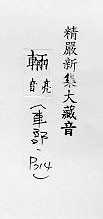 精嚴新集大藏音
輛
音亮
(車部,P314)